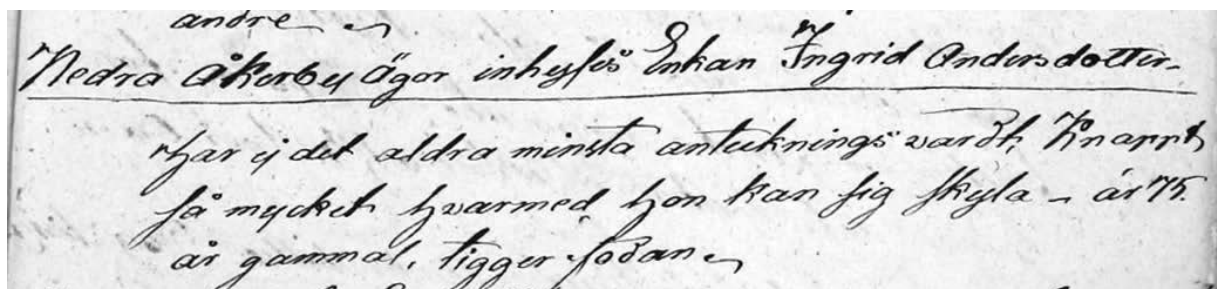 andre
Nedra Åkerby Ägor inhyses Enkan Ingrid Andersdotter
har ej det aldra minsta antecknings värdt, Knappt
så mycket hvarmed hon kan sig skyla - är 75.
år gammal, tigger födan